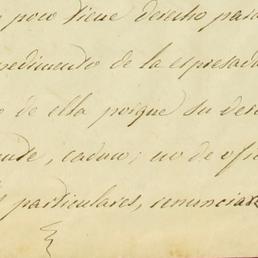 poco tiene derecho para
pedimento de la espresada
de ella porque su dere
caduco; no de ofi
particulares, renunciar